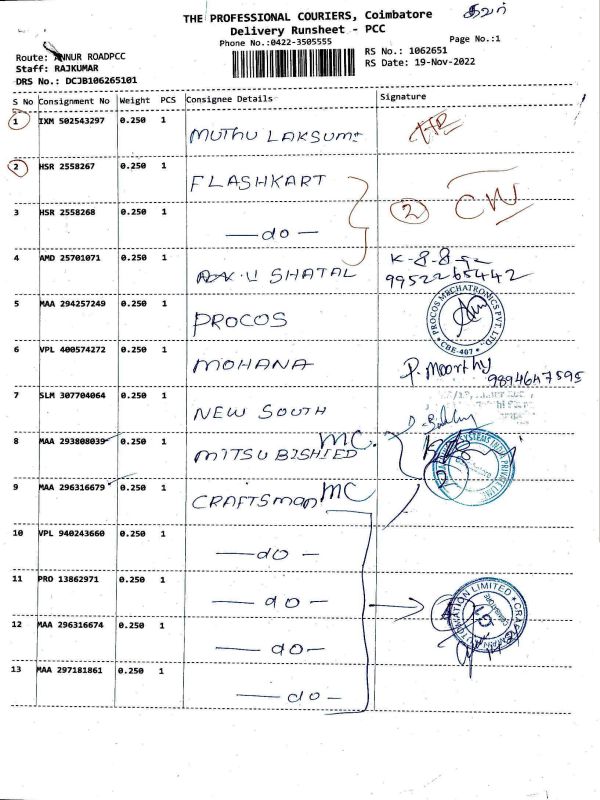 THE PROFESSIONAL COURIERS, Coimbatore
கவர்
Delivery Runsheet - PCC
Phone No.:0422-3505555
Page No.:1
Route: ANNUR ROADPCC
RS No.: 1062651
Staff: RAJKUMAR
RS Date: 19-Nov-2022
DRS No.: DCJB106265101
S No Consignment No Weight PCS Consignee Details Signature
1 IXM 502543297 0.250 1 MUTHU LAKSUMI
2 HSR 2558267 0.250 1 FLASHKART
3 HSR 2558268 0.250 1 — do — 2
4 AMD 25701071 0.250 1 SHATAL
9952265442
5 MAA 294257249 0.250 1 PROCOS
PROCOS MECHATRONICS PVT. LTD.
CBE-407
6 VPL 400574272 0.250 1 MOHANA P. Moorthy
9894647595
7 SLM 307704064 0.250 1 NEW SOUTH
8 MAA 293808039 0.250 1 MITSUBISHIED MC.
SYSTEMS INDIA PRIVATE
2
9 MAA 296316679 0.250 1 CRAFTSman MC
10 VPL 940243660 0.250 1 — do —
11 PRO 13862971 0.250 1 — do —
AUTOMATION LIMITED
4
12 MAA 296316674 0.250 1 — do —
13 MAA 297181861 0.250 1 — do —